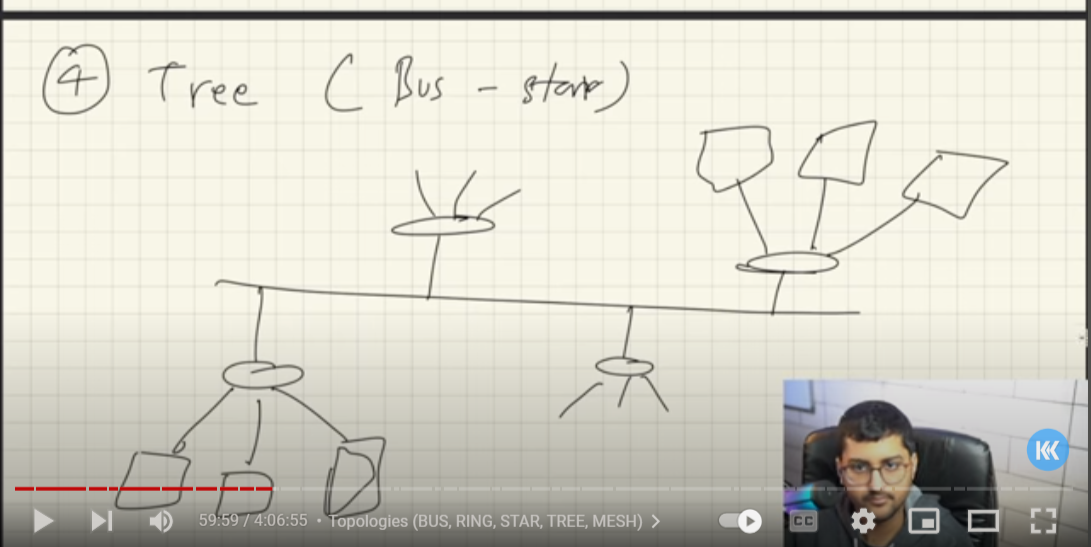 ④ Tree (Bus - star)
59:59 / 4:06:55 • Topologies (BUS, RING, STAR, TREE, MESH)
CC